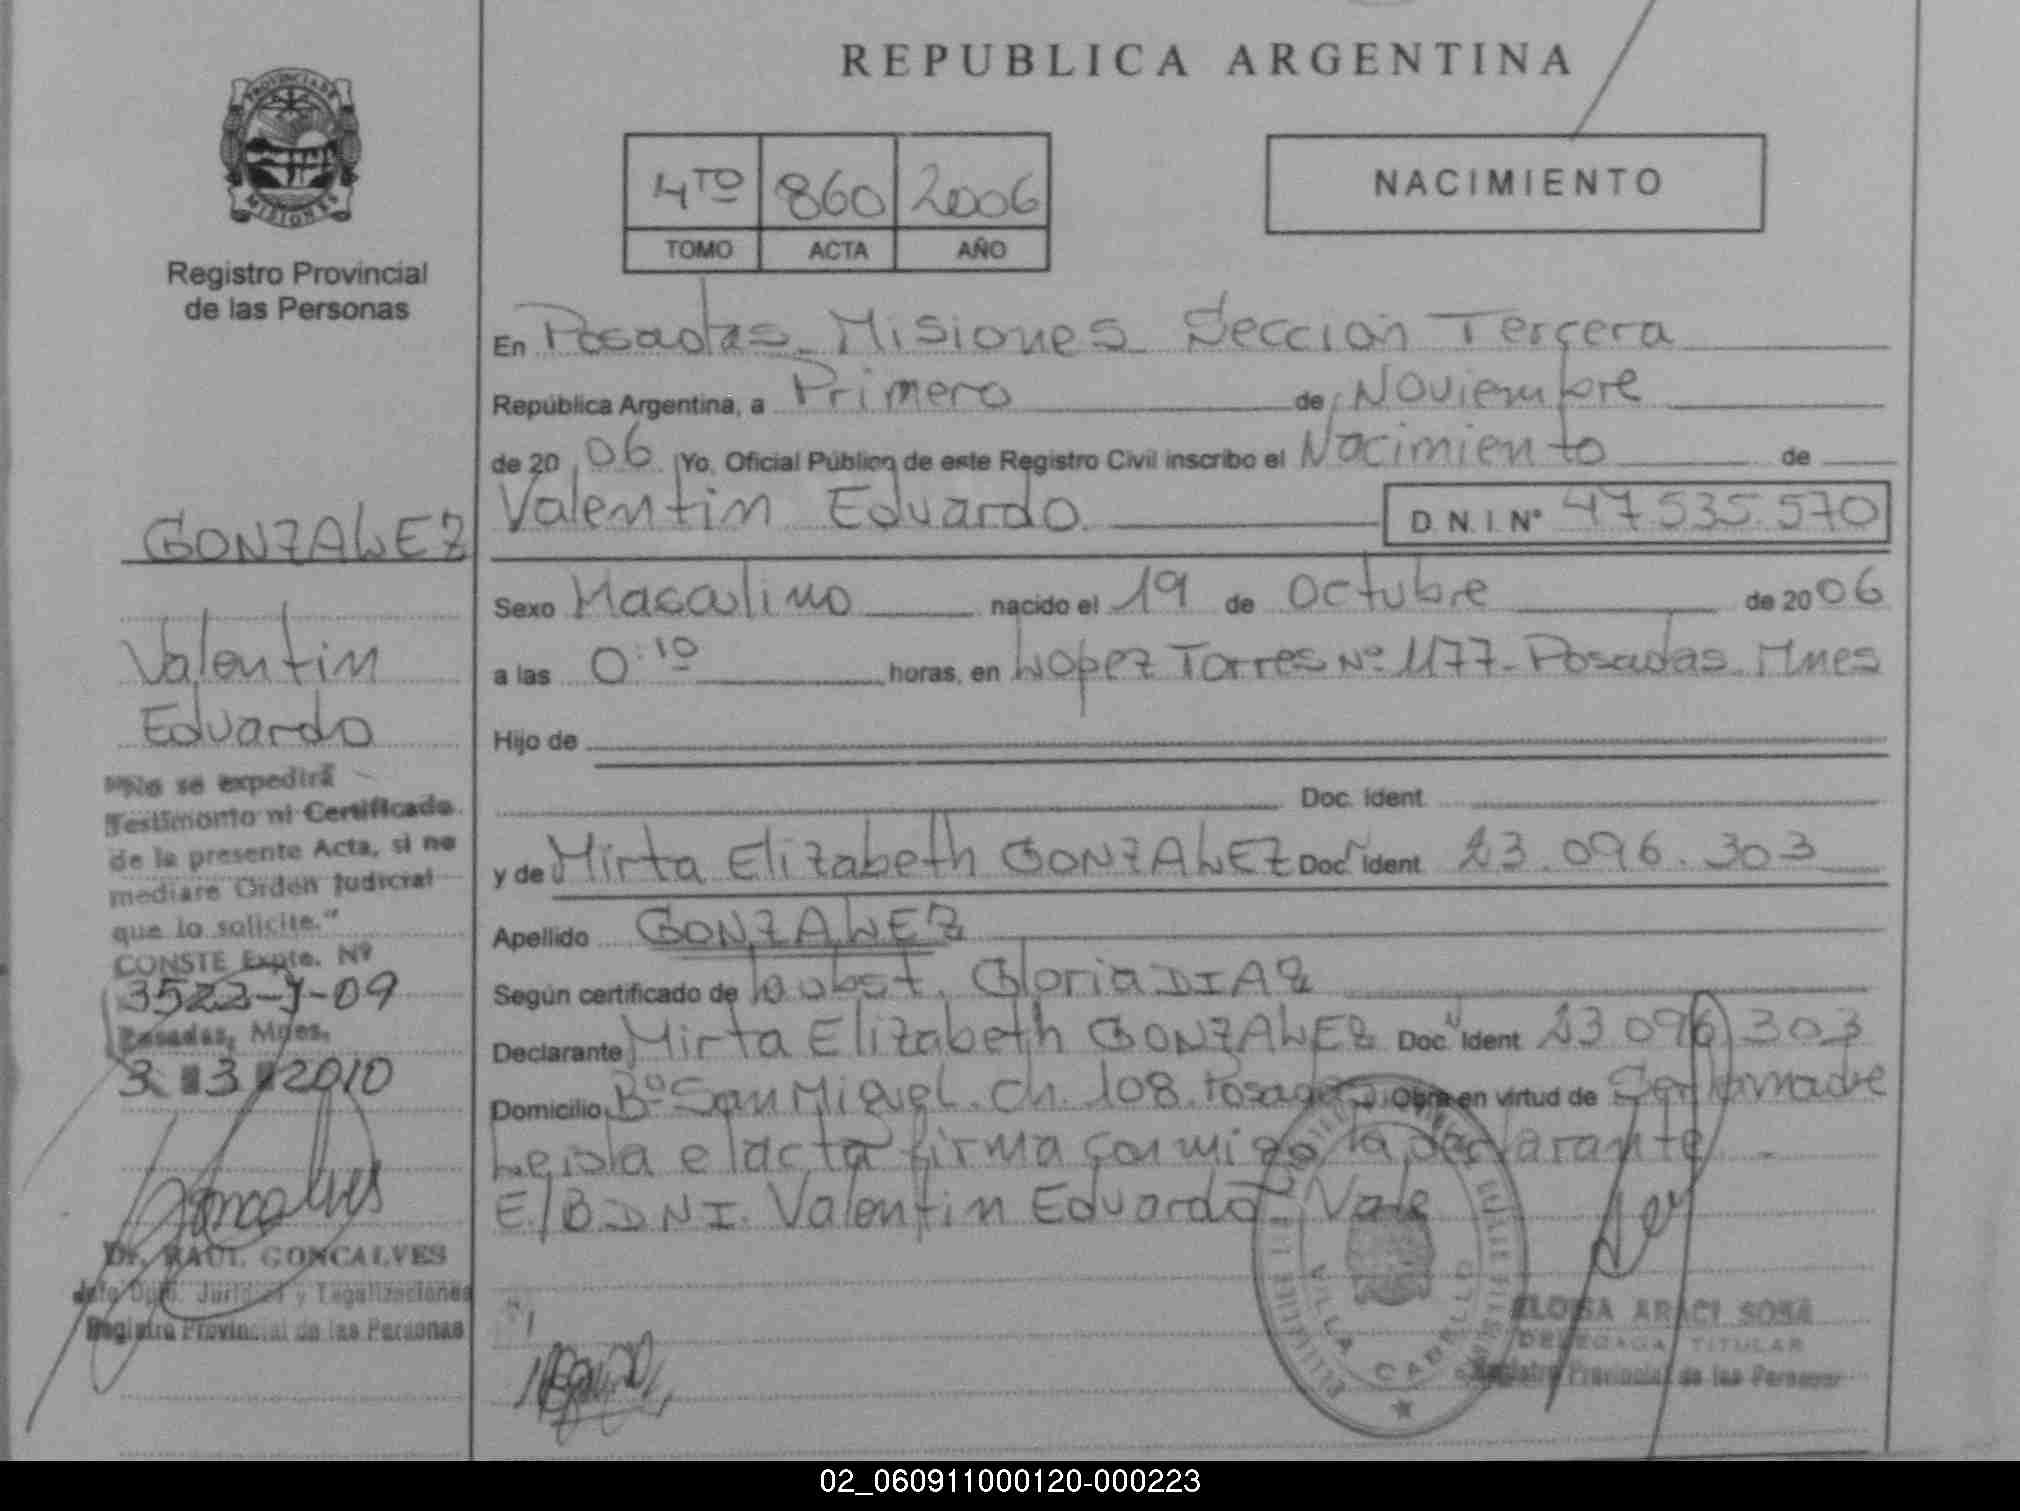 REPUBLICA ARGENTINA
PROVINCIA DE
MISIONES
Registro Provincial
de las Personas
4TO 860 2006
TOMO ACTA AÑO
NACIMIENTO
En Posadas Misiones Sección Tercera
República Argentina, a Primero de Noviembre
de 20 06 Yo, Oficial Público de este Registro Civil inscribo el Nacimiento de
Valentin Eduardo D.N.I Nº 47.535.570
Sexo Masculino nacido el 19 de Octubre de 20 06
a las 0:10 horas, en Lopez Torres Nº 1177- Posadas Mnes
Hijo de
Doc. Ident.
y de Mirta Elizabeth GONZALEZ Doc. Ident. 23.096.303
Apellido GONZALEZ
Según certificado de la obst. Gloria DIAZ
Declarante Mirta Elizabeth GONZALEZ Doc. Ident 23 096 303
Domicilio Bº San Miguel. Ch. 108. Posadas Obra en virtud de Ser la madre
Leida el acta firma conmigo la declarante
E/B DNI. Valentin Eduardo Vale
GONZALEZ
Valentin
Eduardo
"No se expedirá
Testimonio ni Certificado
de la presente Acta, si no
mediare Orden Judicial
que lo solicite."
CONSTE Expte. Nº
3522-J-09
Posadas, Mnes.
3 3 2010
Goncalves
Dr. RAUL GONCALVES
Jefe Dpto. Jurídico y Legalizaciones
Registro Provincial de las Personas
VILLA CABELLO
ELOISA ARACI SOSA
DELEGADA TITULAR
Registro Provincial de las Personas
02_060911000120-000223